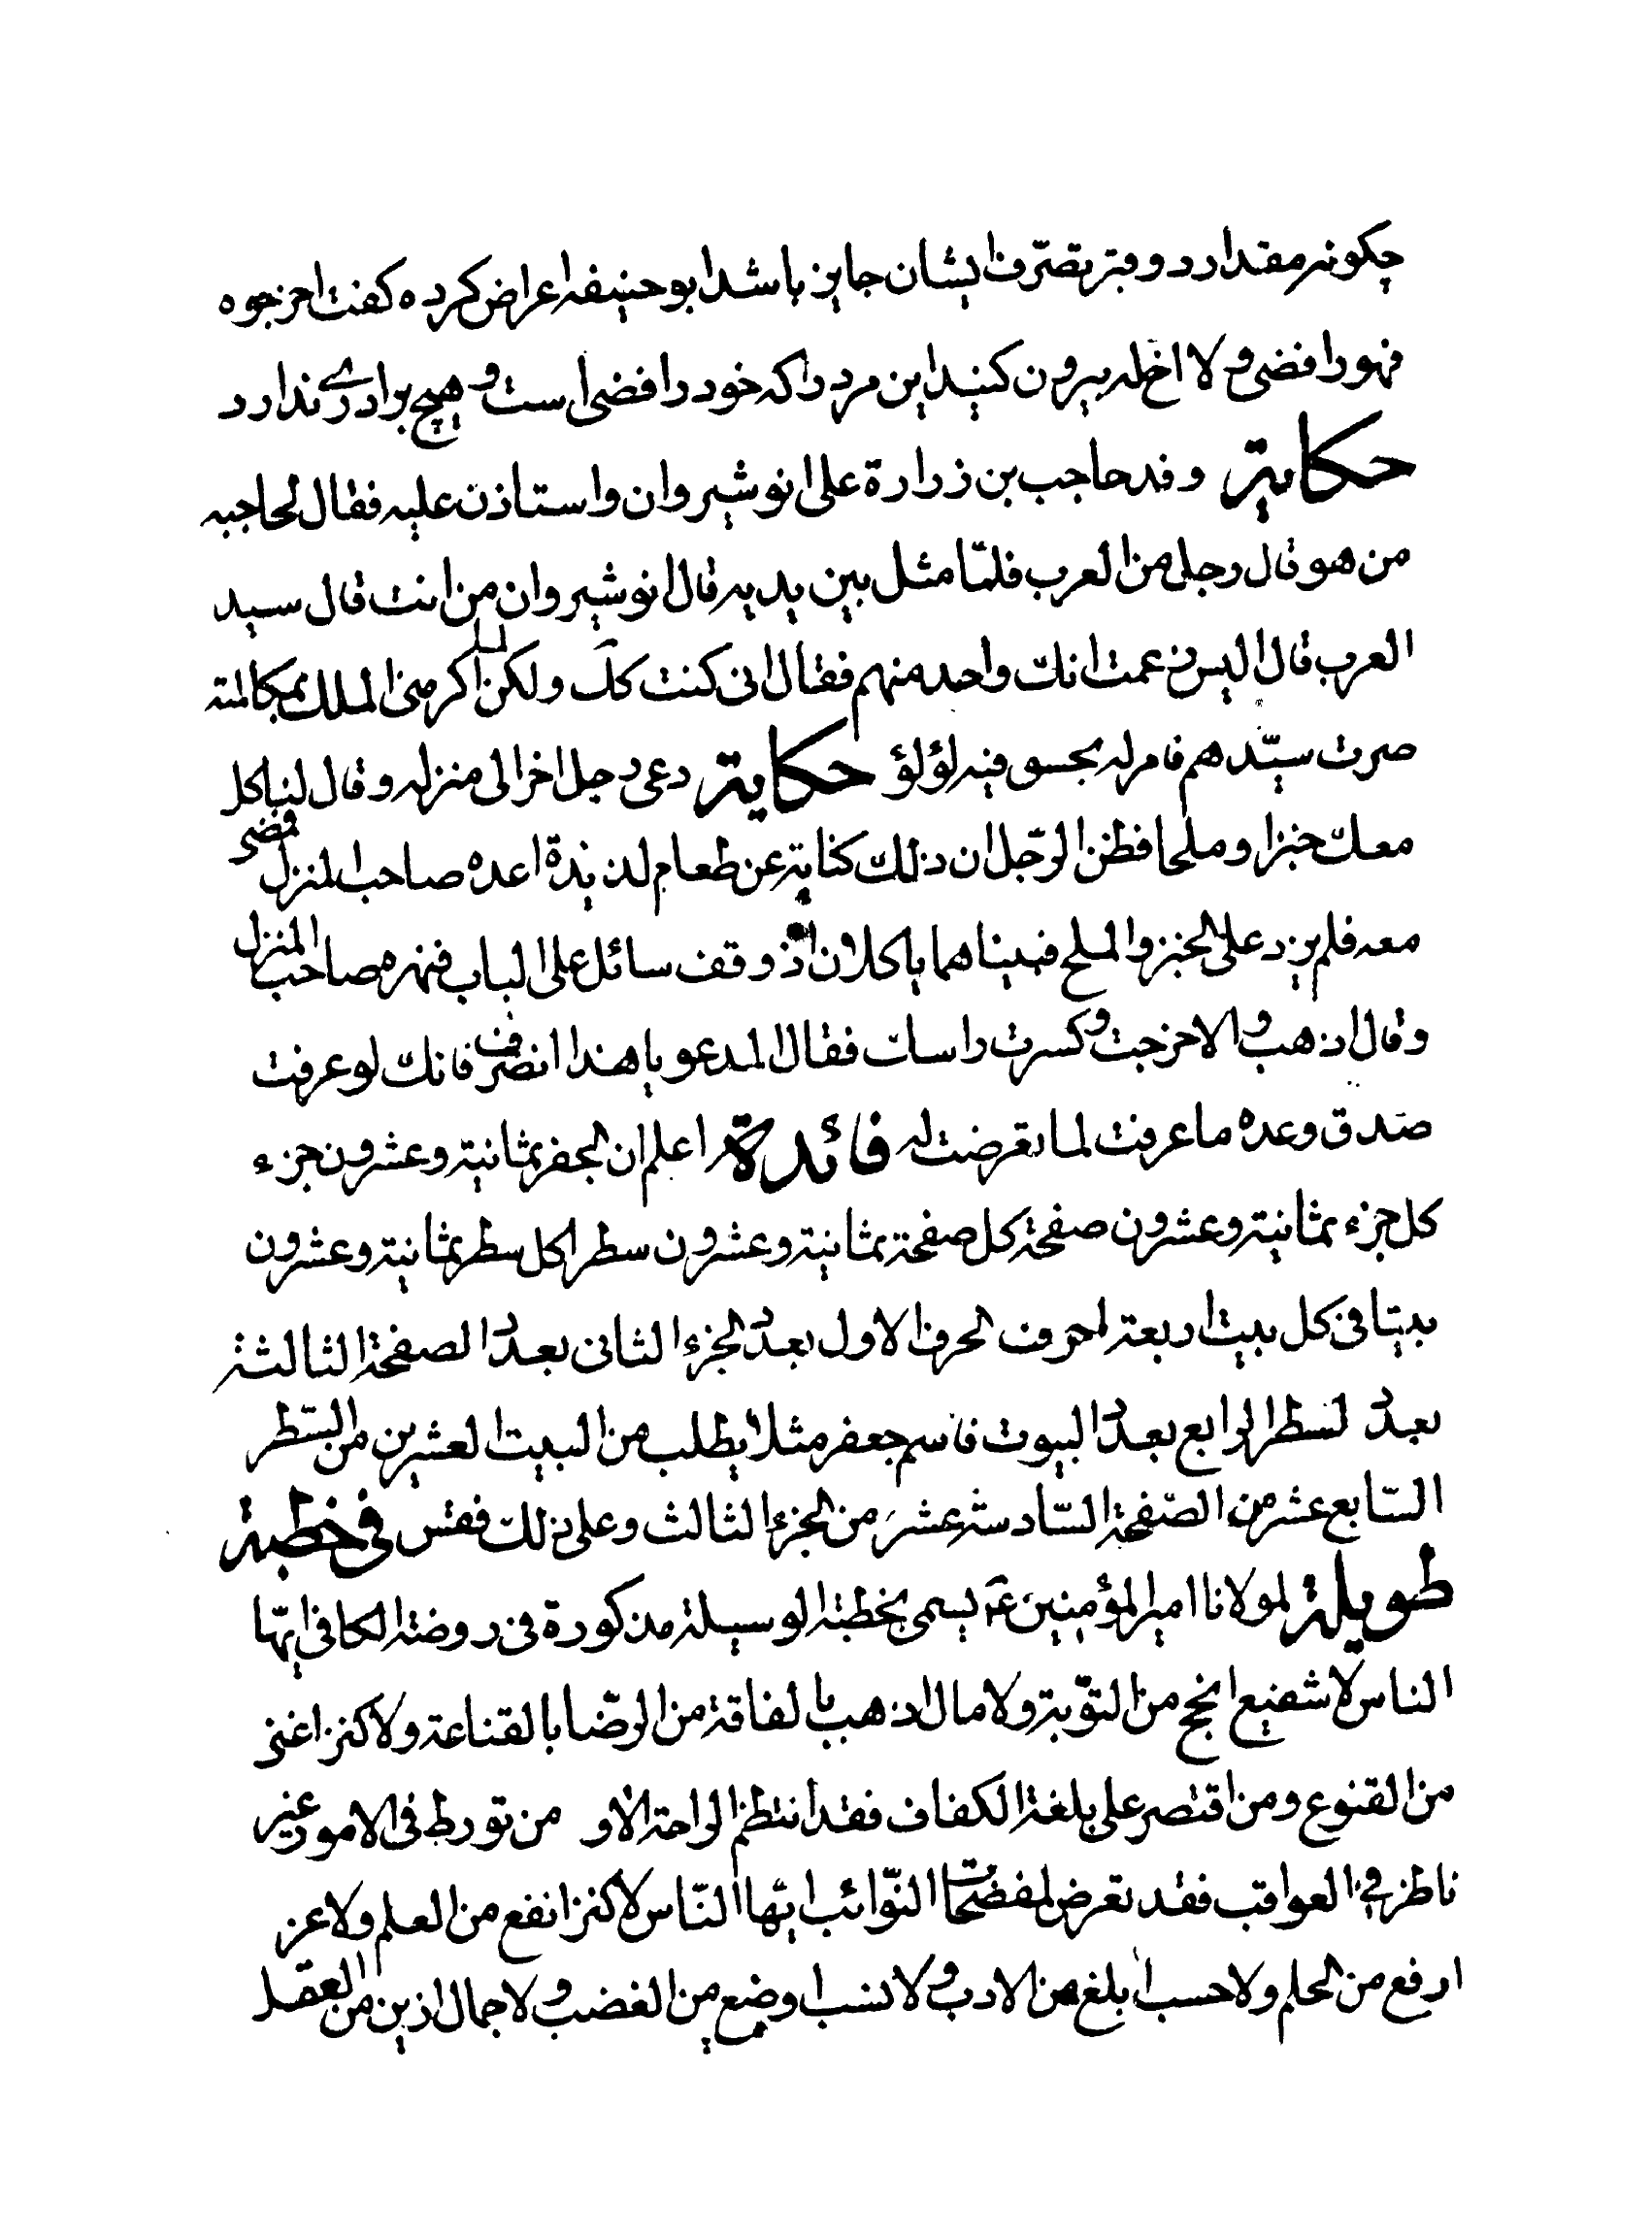 چکونه مقدار دو وجبر بتصرف ایشان جایز باشد ابو حنیفه اعراض کرده کفت اخرجوه
فهو رافضی و لا اخ له بیرون کنید این مرد را که خود رافضی است و هیچ برادری ندارد
حکایة وفد حاجب بن زرارة علی انوشیروان و استاذن علیه فقال لحاجبه
من هو قال رجل من العرب فلمّا مثل بین یدیه قال انوشیروان من انت قال سید
العرب قال الیس زعمت انك واحد منهم فقال انی کنت کك ولکن لما اکرمنی الملك بمکالمته
صرت سیّدهم فامر له بحسو فیه لؤلؤ حکایة دعی رجل اخر الی منزله و قال لنیاکل
معك خبزا و ملحا فظن الرّجل ان ذلك کنایة عن طعام لذیذة اعده صاحب المنزل فمضی
معه فلم یزد علی الخبز والملح فبینا هما یاکلان اذ وقف سائل علی الباب فنهره صاحب المنزل
وقال اذهب و الا خرجت و کسرت راسك فقال المدعو یا هذا انصرف فانك لو عرفت
صدق وعده ما عرفت لما تعرضت له فائدة اعلم ان الجفر بثمانیة و عشرون جزء
کل جزء بثمانیة و عشرون صفحة کل صفحة بثمانیة و عشرون سطرا کل سطر بثمانیة و عشرون
بیتا فی کل بیت اربعة احرف الحرف الاول بعدد الجزء الثانی بعدد الصفحة الثالثة
بعدد السطر الرابع بعدد البیوت فاسم جعفر مثلا یطلب من البیت العشرین من السّطر
السّابع عشر من الصّفحة السّادسة عشر من الجزء الثالث و علی ذلك فقس فی خطبة
طویلة لمولانا امیر المؤمنین عم یسمی بخطبة الوسیلة مذکورة فی روضة الکافی ایّها
الناس لا شفیع انجح من التّوبة ولا مال اذهب بالفاقة من الرّضا بالقناعة ولا کنز اغنی
من القنوع ومن اقتصر علی بلغة الکفاف فقد انتظم الراحة الا و من تورط فی الامور غیر
ناظر فی العواقب فقد تعرض لمفضحات النّوائب ایّها النّاس لا کنز انفع من العلم ولا عز
ارفع من الحلم ولا حسب ابلغ من الادب و لا نسب اوضع من الغضب و لا جمال ازین من العقل